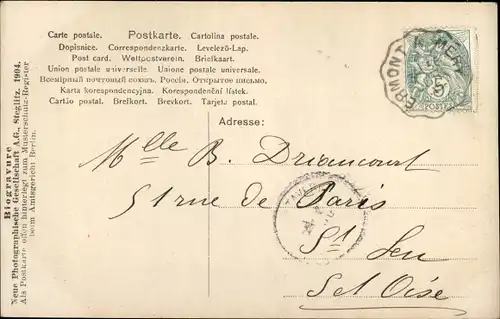 Carte postale. Postkarte. Cartolina postale.
Dopisnice. Correspondenzkarte. Levelező-Lap.
Post card. Weltpostverein. Briefkaart.
Union postale universelle. Unione postale universale.
Всемірный почтовый союзъ. Россія. Открытое письмо.
Karta korespondencyjna. Korespondenční lístek.
Cartão postal. Brefkort. Brevkort. Tarjeta postal.
Adresse:
Mlle B. Driancourt
51 rue de Paris
St Leu
Set Oise
Biogravure
Neue Photographische Gesellschaft A.G., Steglitz. 1904.
Als Postkarte offen hinterlegt zum Musterschutz-Register
beim Amtsgericht Berlin.
ERMONT
MER
5
POSTES